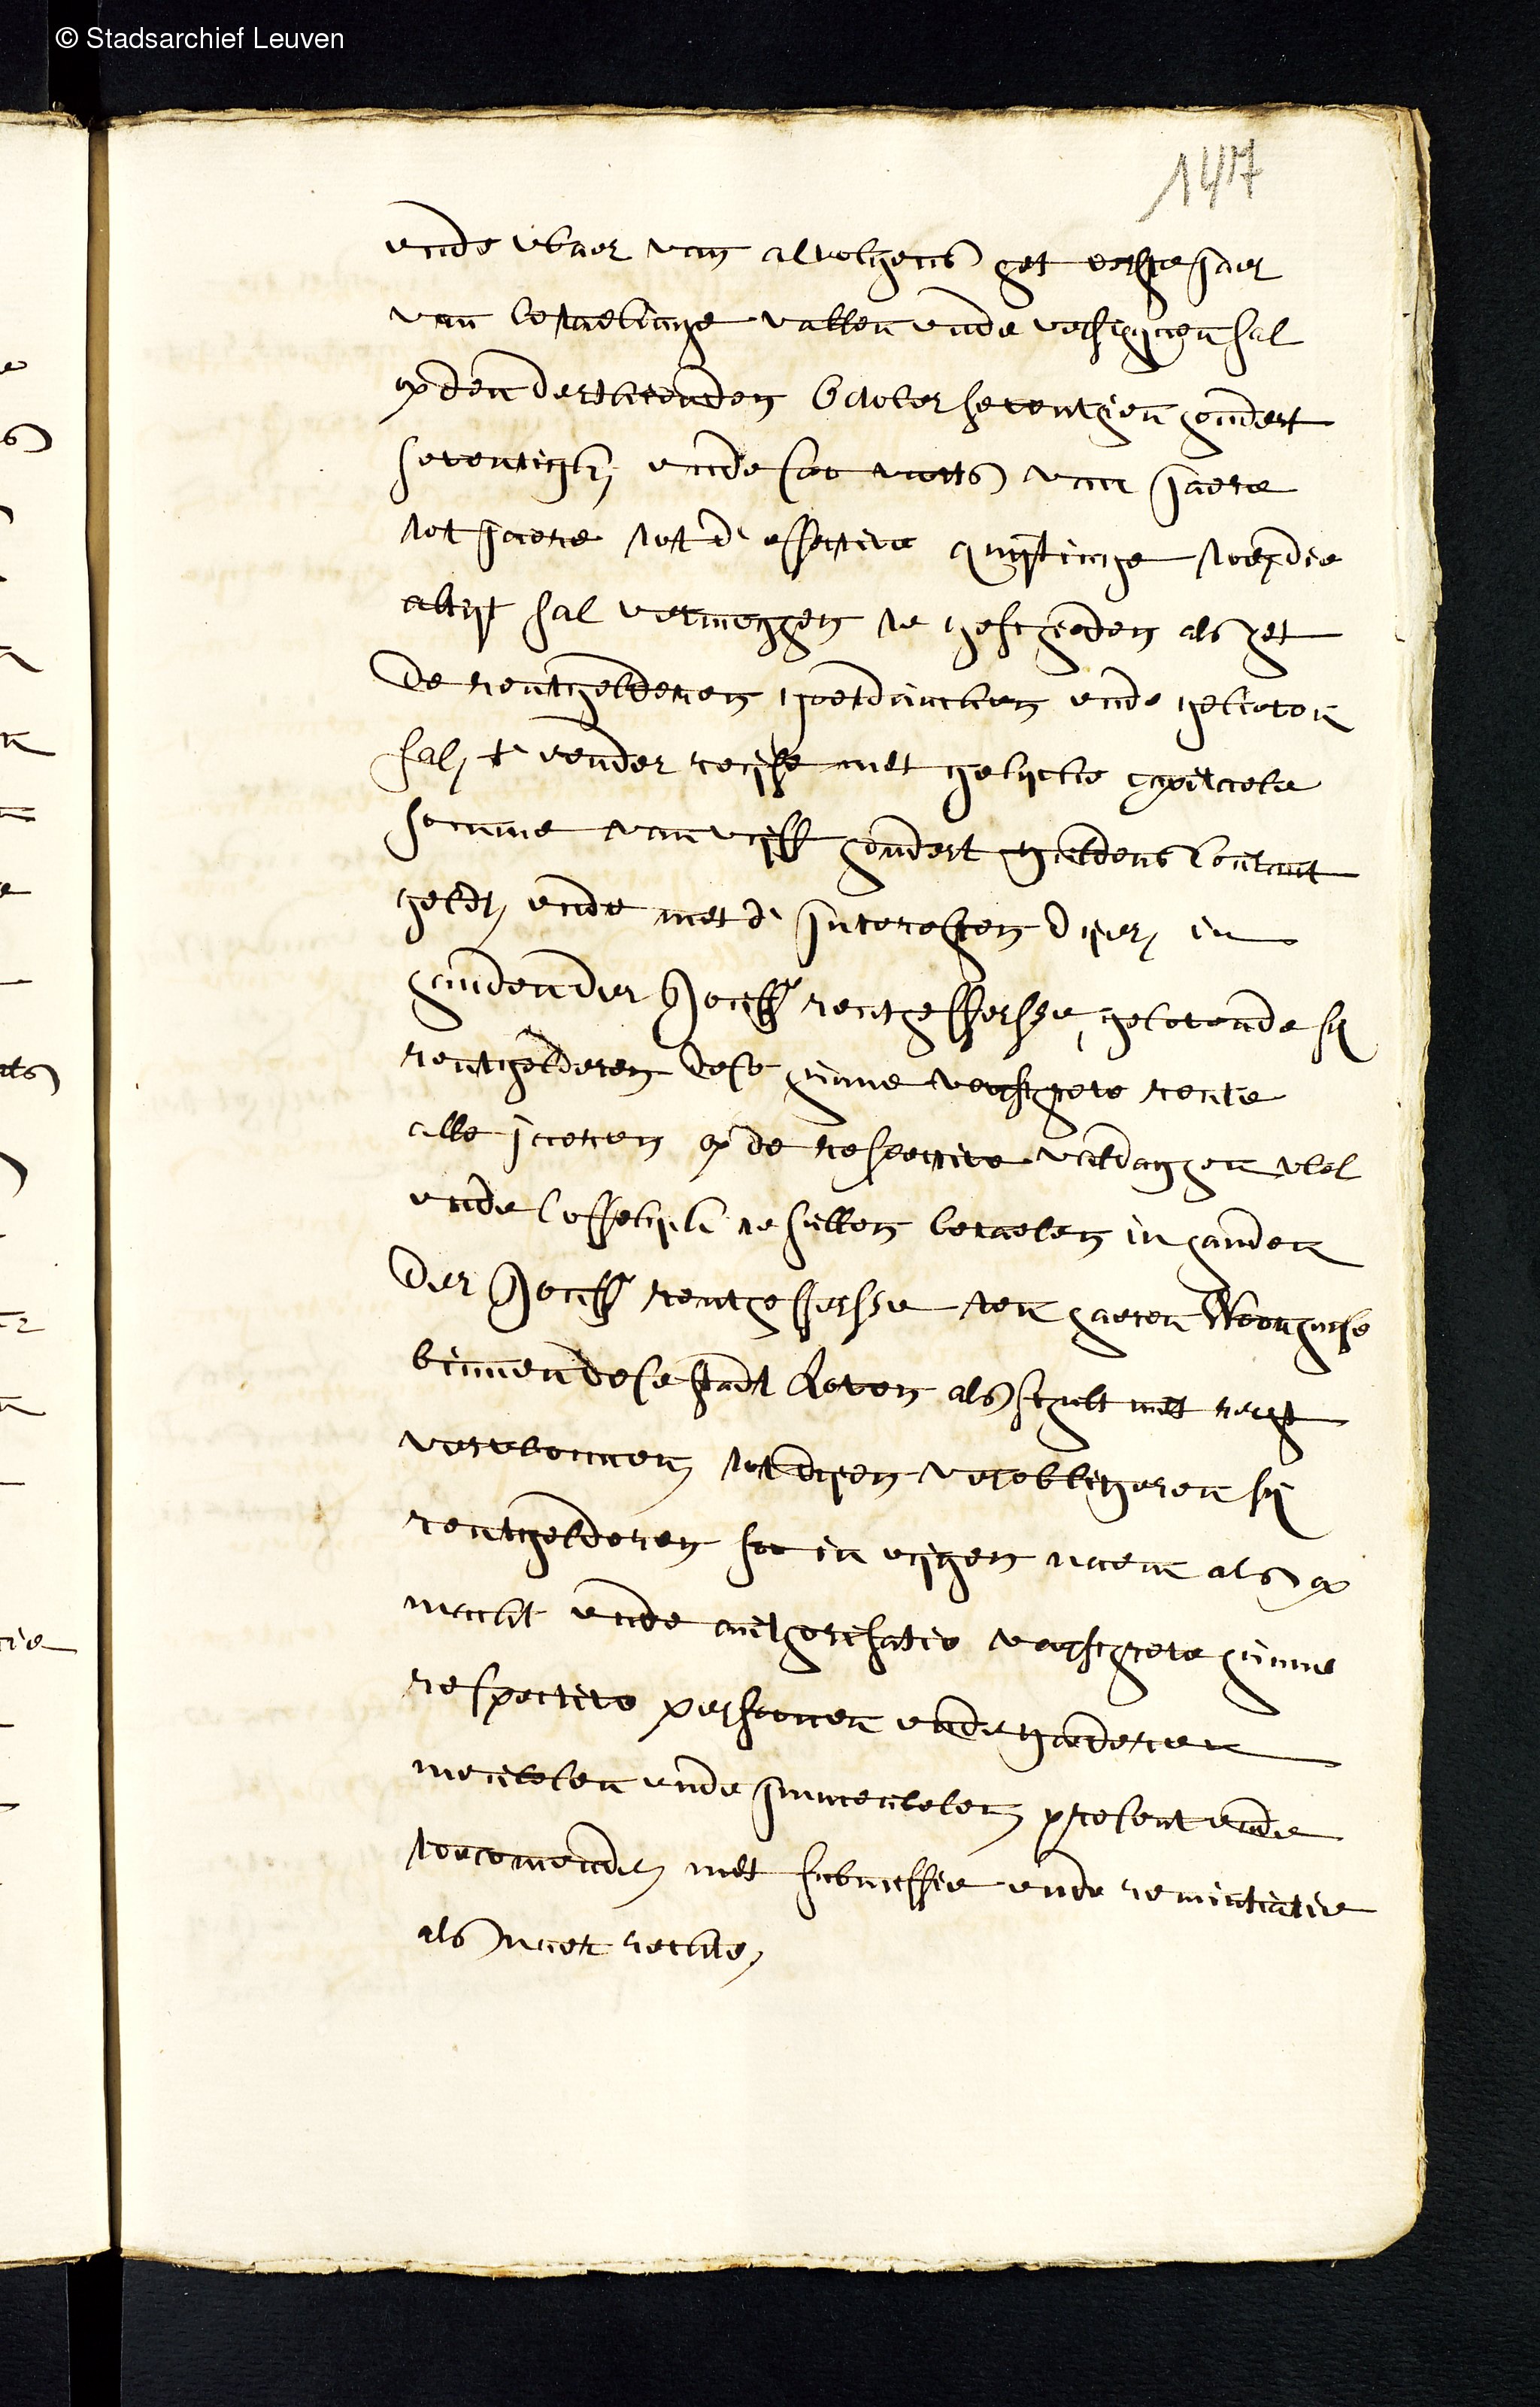 © Stadsarchief Leuven
147
ende waer van alvolgens het eerste jaer
van betaelinge vallen ende verschynen sal
op den derthienden October seventhien hondert
seventigh, ende soo voorts van jaere
tot jaere tot d' effective quytinge toe, die
altyt sal vermoghen te geschieden als het
de rentgelderen goetduncken ende gelieven
sal, t' eender reyse met gelycke capitaele
somme van vyff hondert guldens Courant
geldt, ende met d' interesten dyer, in
handen der Jouffe rentheffersse, gelovende sy
rentgelderen dese hunne verschreve rente
alle jaeren op de respective valdaghen wel
ende loffelyck te sullen betaelen in handen
der Jouffe rentheffersse ten haeren Woonhuyse
binnen dese stadt Loven als schult met recht
verwonnen, tot dyen verobligeren sy
rentgelderen soo in eyghen naem als op
macht ende authorisatie verschreve hunne
respective persoonen ende goederen
meubelen ende immeubelen, present ende
toecomende, met submissie ende renuntiatie
als naer rechte,